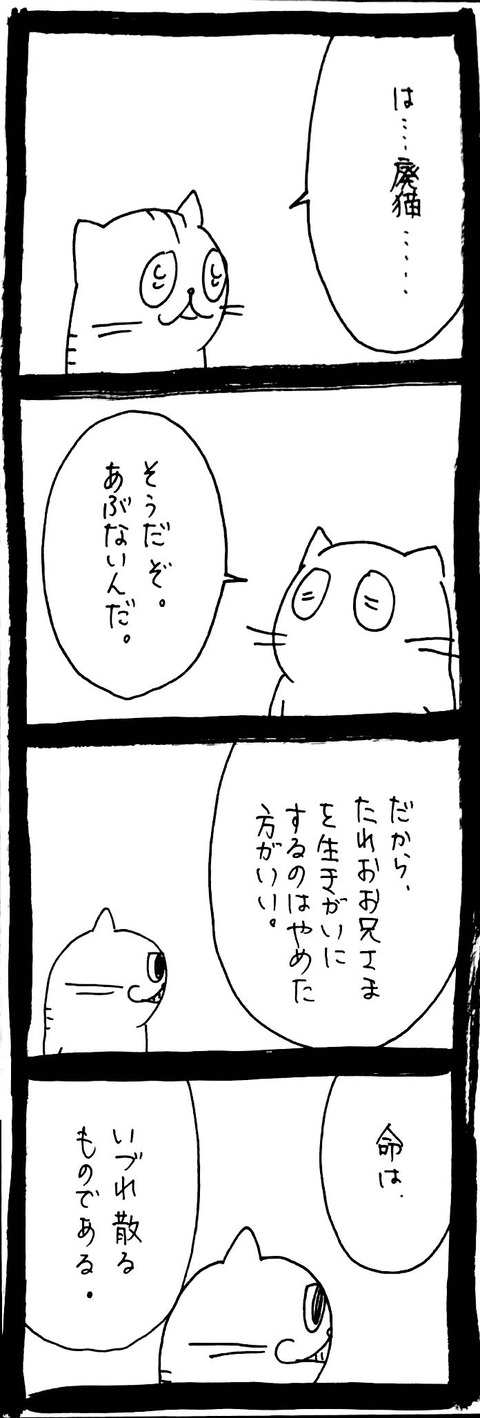 は……廃猫……
そうだぞ。
あぶないんだ。
だから、
たれおお兄さま
を生きがいに
するのはやめた
方がいい。
命は、
いづれ散る
ものである。